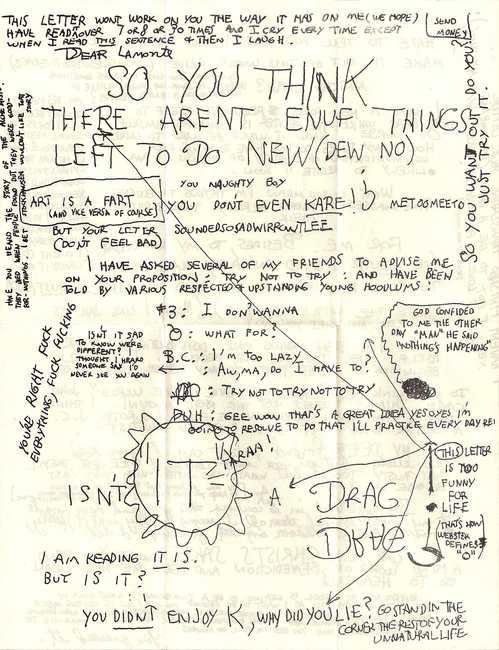 THIS LETTER WONT WORK ON YOU THE WAY IT HAS ON ME (WE HOPE)
HAVE READ IT OVER 7 OR 8 OR 90 TIMES AND I CRY EVERY TIME EXCEPT
WHEN I READ THIS SENTENCE & THEN I LAUGH.
SEND
MONEY
DEAR Lamonte
SO YOU THINK
THERE ARENT ENUF THINGS
LEFT TO DO NEW (DEW NO)
SO YOU WANT OUT DO YOU?
JUST TRY IT
HAVE YOU HEARD THE STORY OF THE
THEY DIED WHEN PEOPLE FOUND OUT THEY WERE GOOD-
FOR-NOTHINGS. I BET STOCKHAUSEN WOULDN'T LIKE THAT
STORY
YOU NAUGHTY BOY
ART IS A FART
(AND VICE VERSA OF COURSE)
YOU DON'T EVEN KARE!
METOOMEETO
BUT YOUR LETTER
(DON'T FEEL BAD)
SOUNDEDSOSADWIRROWTLEE
I HAVE ASKED SEVERAL OF MY FRIENDS TO ADVISE ME
ON YOUR PROPOSITION, TRY NOT TO TRY: AND HAVE BEEN
TOLD BY VARIOUS RESPECTED & UPSTANDING YOUNG HOODLUMS:
#3: I DON'T WANNA
WHAT FOR?
B.C.: I'M TOO LAZY
: AW, MA, DO I HAVE TO?
: TRY NOT TO TRY NOT TO TRY
DUH: GEE WOW THAT'S A GREAT IDEA YESOYES I'M
GOING TO RESOLVE TO DO THAT I'LL PRACTICE EVERY DAY REI
ISN'T IT SAD
TO KNOW WE'RE
DIFFERENT? I
THOUGHT I HEARD
SOMEONE SAY I'D
NEVER SEE YOU AGAIN
YOU'RE RIGHT FUCK
EVERYTHING, FUCK FUCKING
GOD CONFIDED
TO ME THE OTHER
DAY "MAN" HE SAID
"NOTHING'S HAPPENING"
TARAA!
ISN'T "IT" A DRAG
DRAG
THIS LETTER
IS TOO
FUNNY
FOR
LIFE
(THAT'S HOW
WEBSTER
DEFINES
"O")
I AM READING IT IS.
BUT IS IT?
YOU DIDNT ENJOY K, WHY DID YOU LIE? GO STAND IN THE
CORNER THE REST OF YOUR
UNNATURAL LIFE